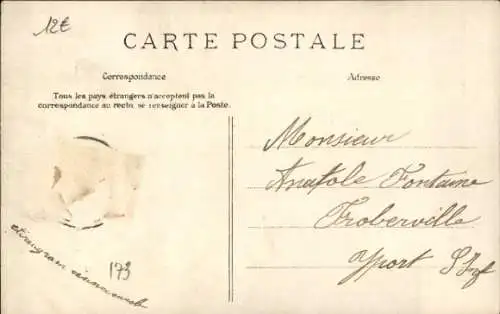 12€
CARTE POSTALE
Correspondance
Adresse
Tous les pays étrangers n'acceptent pas la
correspondance au recto, se renseigner à la Poste.
Monsieur
Anatole Fontaine
Froberville
Yport
173